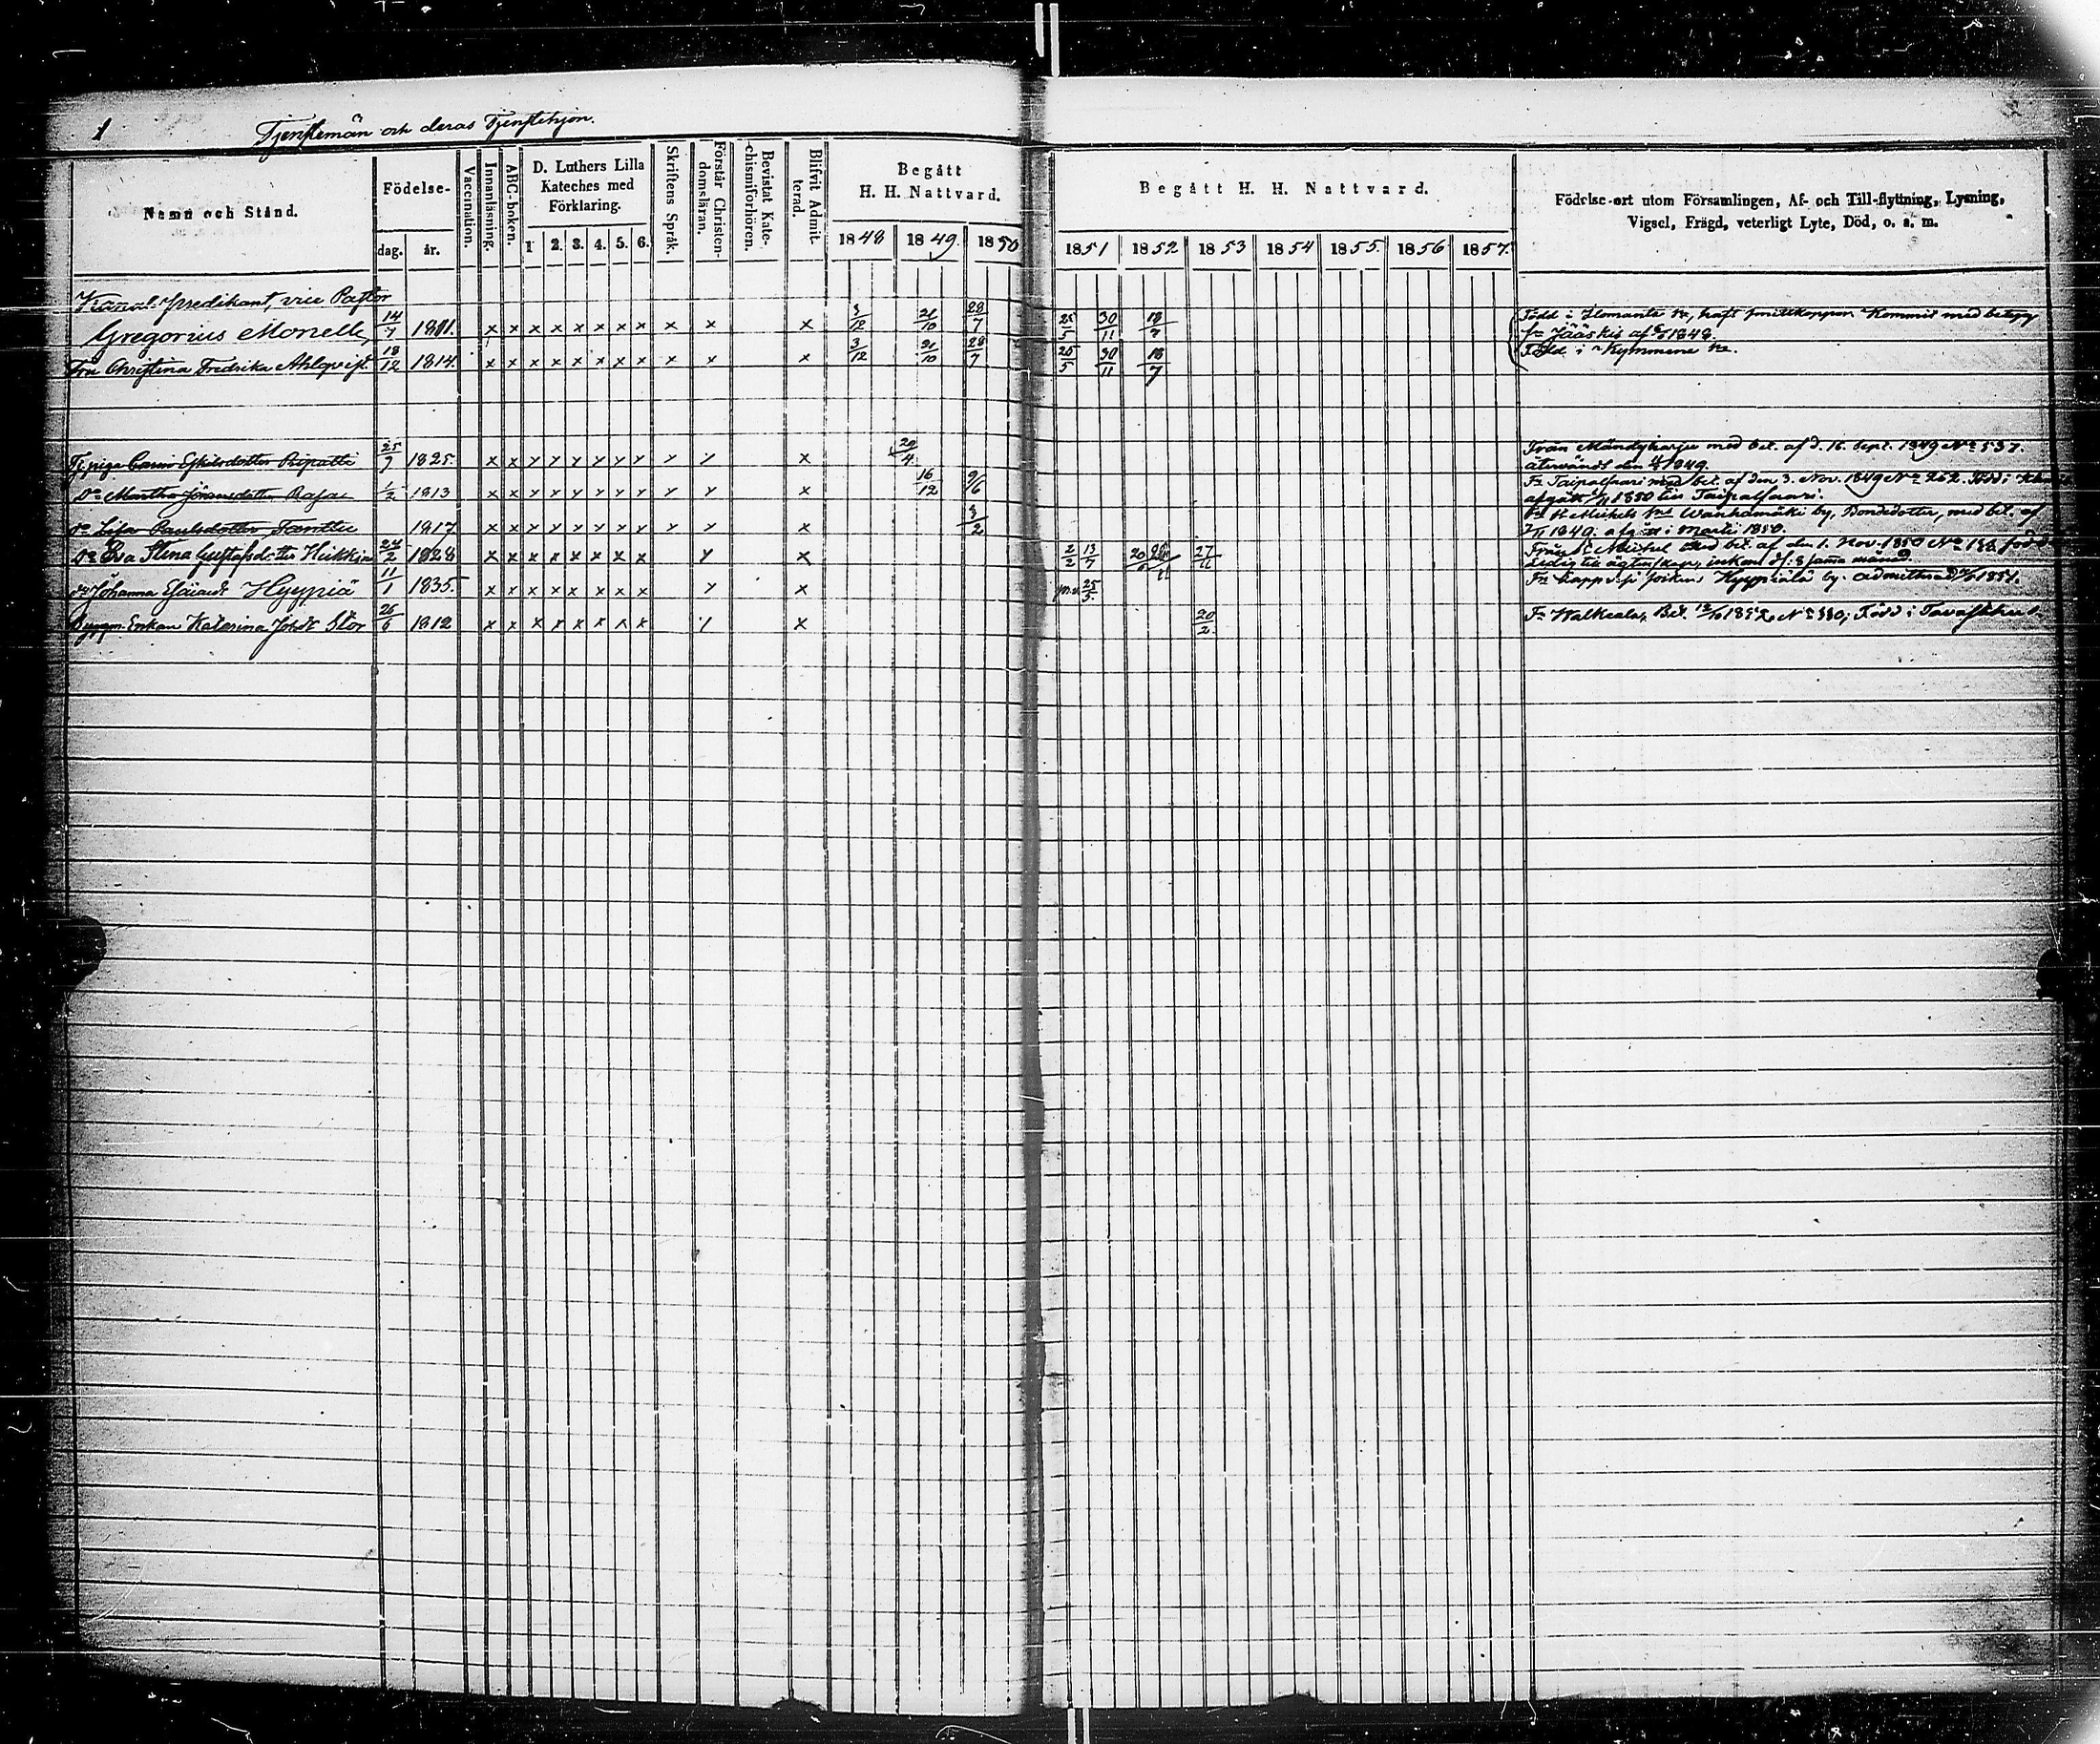 1 Tjenstemän och deras Tjenstehjon.
Namn och Stånd.
Födelse-
dag. år.
Vaccination.
Innanläsning.
ABC-boken.
D. Luthers Lilla
Kateches med
Förklaring.
1 2. 3. 4. 5. 6.
Skriftens Språk.
Förstår Christen-
domsläran.
Bevistat Kate-
chismiförhören.
Blifvit Admit-
terad.
Begått
H. H. Nattvard.
1848 1849. 1850
Begått H. H. Nattvard.
1851 1852 1853 1854 1855. 1856 1857.
Födelse-ort utom Församlingen, Af- och Till-flyttning, Lysning,
Vigsel, Frägd, veterligt Lyte, Död, o. s. m.
Kanal-predikant, vice Pastor
Gregorius Monelle, 14/7 1811. x x x x x x x x x x x 3/12 21/10 28/7 25/5 30/11 18/7 Född i Ilomants haft smittkoppor. Kommit med betyg
Jääskis af 1848.
Fru Christina Fredrika Ahlqvist. 18/12 1814. x x x x x x x x x x x 3/12 21/10 28/7 25/5 30/11 18/7 Född i Kymmene
Tjpiga Carin Eskilsdotter Ripatti 25/7 1825. x x x x x x x x x x x 20/4 Från Mäntyharju med bet. af d. 16. Sept. 1849 No 537.
återvändt den 1849.
Do Martha Göransdotter 1/2 1813 x x x x x x x x x x x 16/12 9/6 Fr. Taipalsaari med bet. af den 3. Nov. 1849 No 262. Född i
afgått 1850 till Taipalsaari.
Do Lisa Paulsdotter 1817 x x x x x x x x x x x 3/2 St Michels Wanhamäki by, Bondedotter, med bet. af
1849. afgått i Martii 1850.
Do Eva Stina Gustafsdotter Heikkin 24/2 1828 x x x x x x x x x x 2/2 13/7 27/11 Från St Michel med bet. af den 1. Nov. 1850 No
Ledig till ägtenskap, inkom samma månad
Do Johanna Esaiasdr Hyypiä 11/1 1835. x x x x x x x x x x 25/5. Fr. Lappvesi socken Hyypiälä by. admitterad 1851.
Enkan Katarina Johdr Stor 26/6 1812 x x x x x x x x x x 20/2. Fr. Walkeala, Bet. 1852 Född i Tavastehus